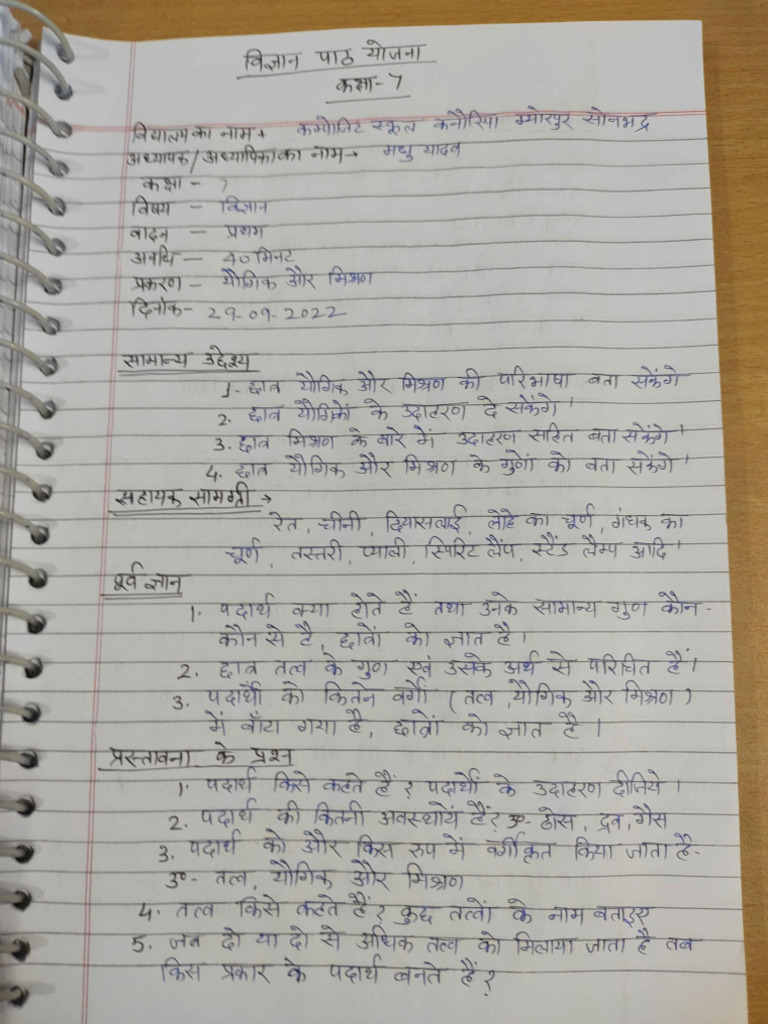 विज्ञान पाठ योजना
कक्षा - 7
विद्यालय का नाम → कम्पोजिट स्कूल कनौरिया म्योरपुर सोनभद्र
अध्यापक/अध्यापिका का नाम → मधु यादव
कक्षा - 7
विषय - विज्ञान
वादन - प्रथम
अवधि - 40 मिनट
प्रकरण - यौगिक और मिश्रण
दिनांक - 29-09-2022
सामान्य उद्देश्य
1. छात्र यौगिक और मिश्रण की परिभाषा बता सकेंगे
2. छात्र यौगिकों के उदाहरण दे सकेंगे।
3. छात्र मिश्रण के बारे में उदाहरण सहित बता सकेंगे।
4. छात्र यौगिक और मिश्रण के गुणों को बता सकेंगे।
सहायक सामग्री →
रेत, चीनी, दियासलाई, लोहे का चूर्ण, गंधक का
चूर्ण, तस्तरी, प्याली, स्पिरिट लैंप, स्टैंड लैम्प आदि।
पूर्व ज्ञान
1. पदार्थ क्या होते हैं तथा उनके सामान्य गुण कौन-
कौन से है, छात्रों को ज्ञात है।
2. छात्र तत्व के गुण एवं उसके अर्थ से परिचित हैं।
3. पदार्थों को कितने वर्गों (तत्व, यौगिक और मिश्रण)
में बाँटा गया है, छात्रों को ज्ञात है।
प्रस्तावना के प्रश्न
1. पदार्थ किसे कहते हैं? पदार्थों के उदाहरण दीजिये।
2. पदार्थ की कितनी अवस्थायें हैं? उ०- ठोस, द्रव, गैस
3. पदार्थ को और किस रूप में वर्गीकृत किया जाता है-
उ०- तत्व, यौगिक और मिश्रण
4. तत्व किसे कहते हैं? कुछ तत्वों के नाम बताइए
5. जब दो या दो से अधिक तत्व को मिलाया जाता है तब
किस प्रकार के पदार्थ बनते हैं?